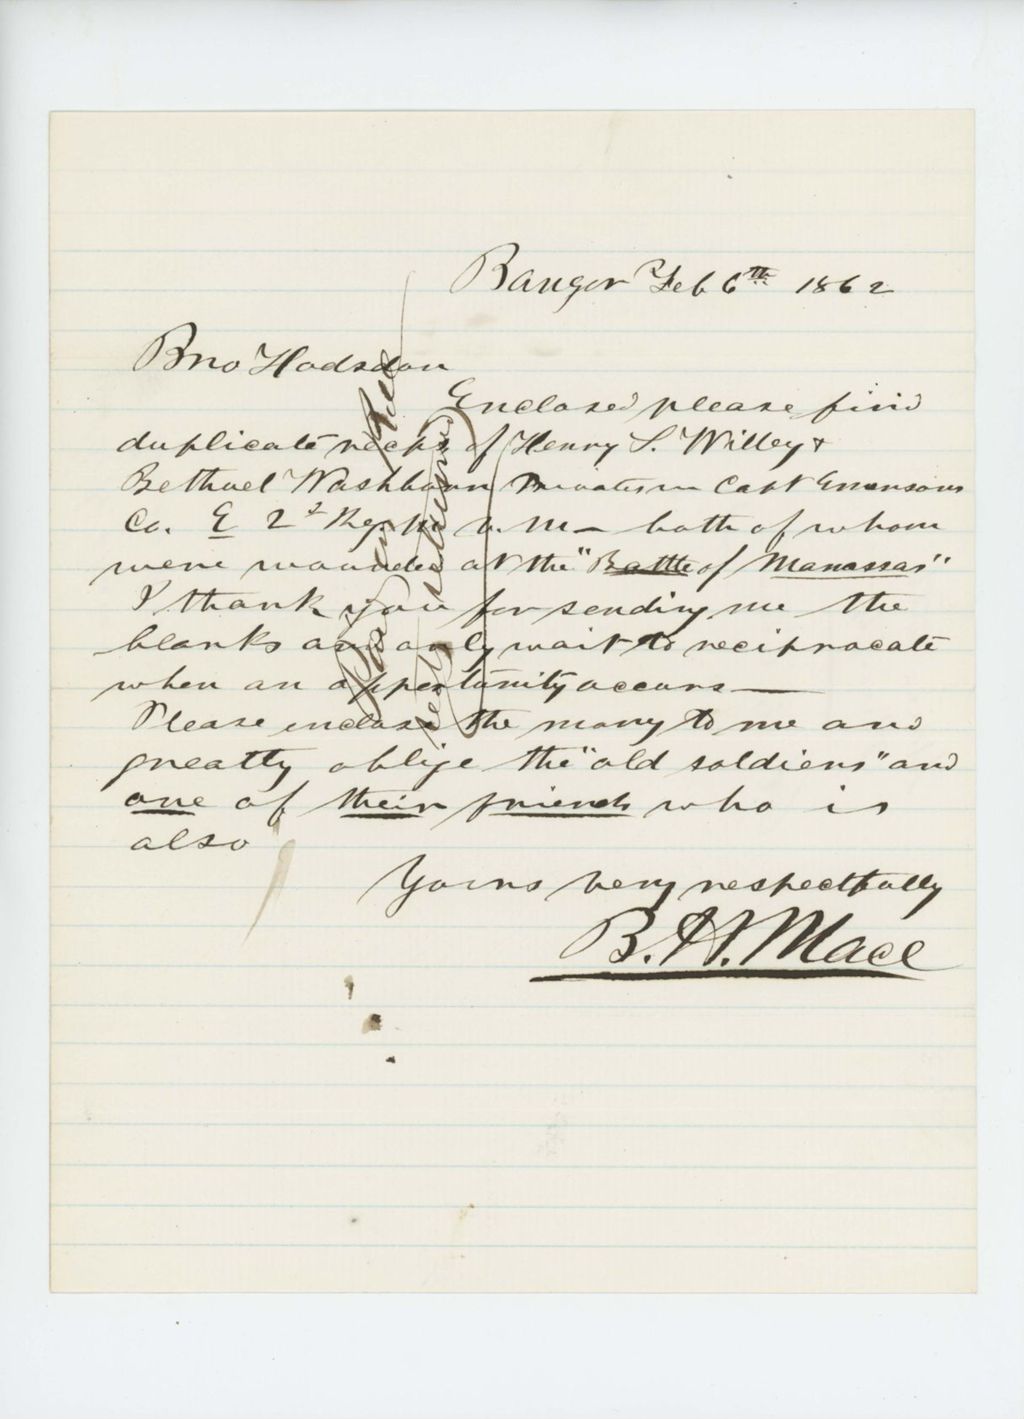 Bangor Feb 6th 1862
Bro Hodsdon
Enclosed please find
duplicate recps of Henry S. Willey &
Bethuel Washburn Privates in Capt Emersons
Co. E 2d Reg. M. V. M – both of whom
were wounded at the "Battle of Manassas"
I thank you for sending me the
blanks and only wait to reciprocate
when an opportunity occurs —
Please enclose the money to me and
greatly oblige the "old soldiers" and
one of their friends who is
also
Yours very respectfully
B. H. Mace